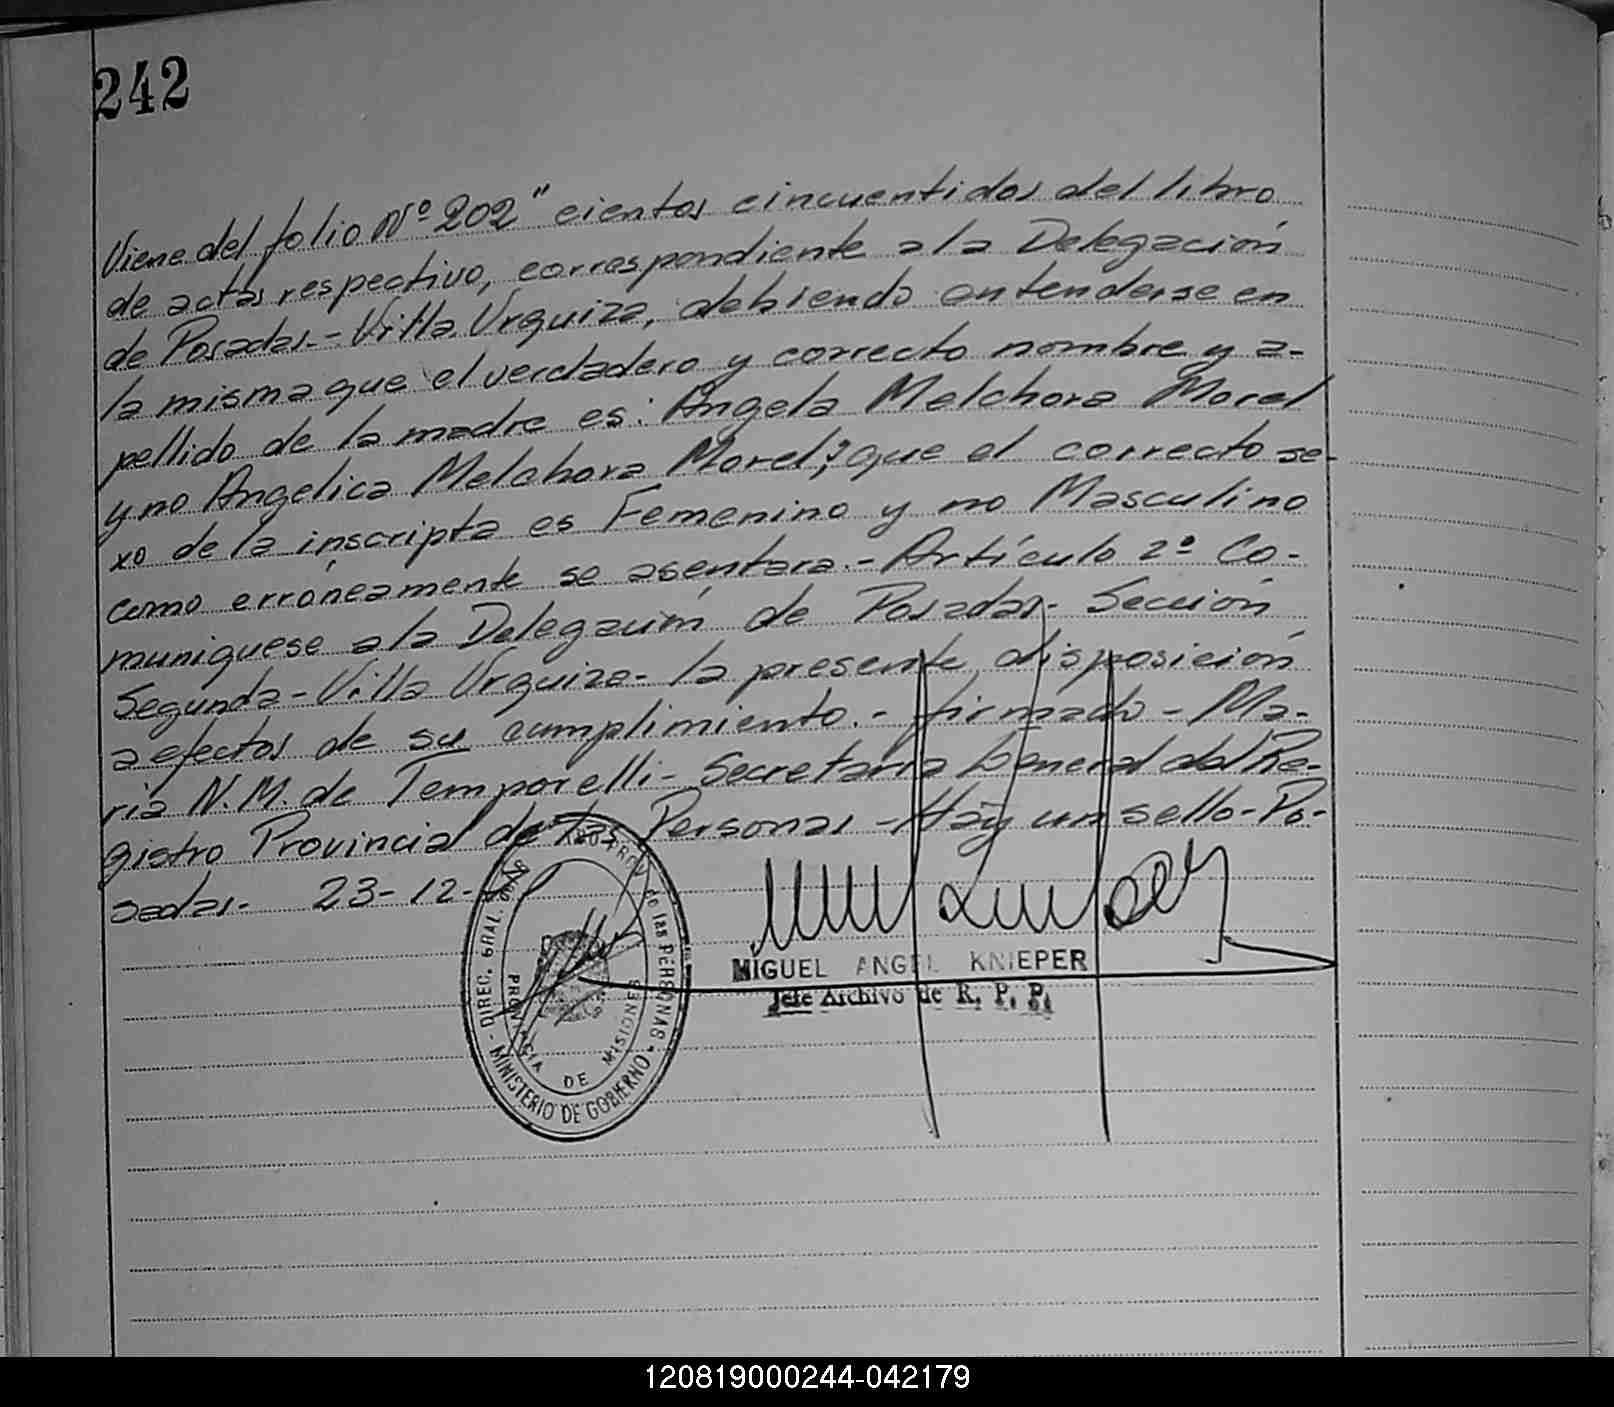 242
Viene del folio Nº 202" cientos cincuentidos del libro
de actas respectivo, correspondiente a la Delegación
de Posadas.- Villa Urquiza, debiendo entenderse en
la misma que el verdadero y correcto nombre y a-
pellido de la madre es: Angela Melchora Morel
y no Angelica Melchora Morel; que el correcto se-
xo de la inscripta es Femenino y no Masculino
como erróneamente se asentara.- Artículo 2º Co-
muniquese a la Delegación de Posadas- Sección
Segunda- Villa Urquiza- la presente disposición
a efectos de su cumplimiento.- firmado - Ma-
ria N. M. de Temporelli- Secretaria General del Re-
gistro Provincial de las Personas - Hay un sello- Po-
sadas- 23-12-
MIGUEL ANGEL KNIEPER
Jefe Archivo de R. P. P.
DIREC. GRAL. PROV de las PERSONAS
PROVINCIA DE MISIONES
- MINISTERIO DE GOBIERNO -
120819000244-042179